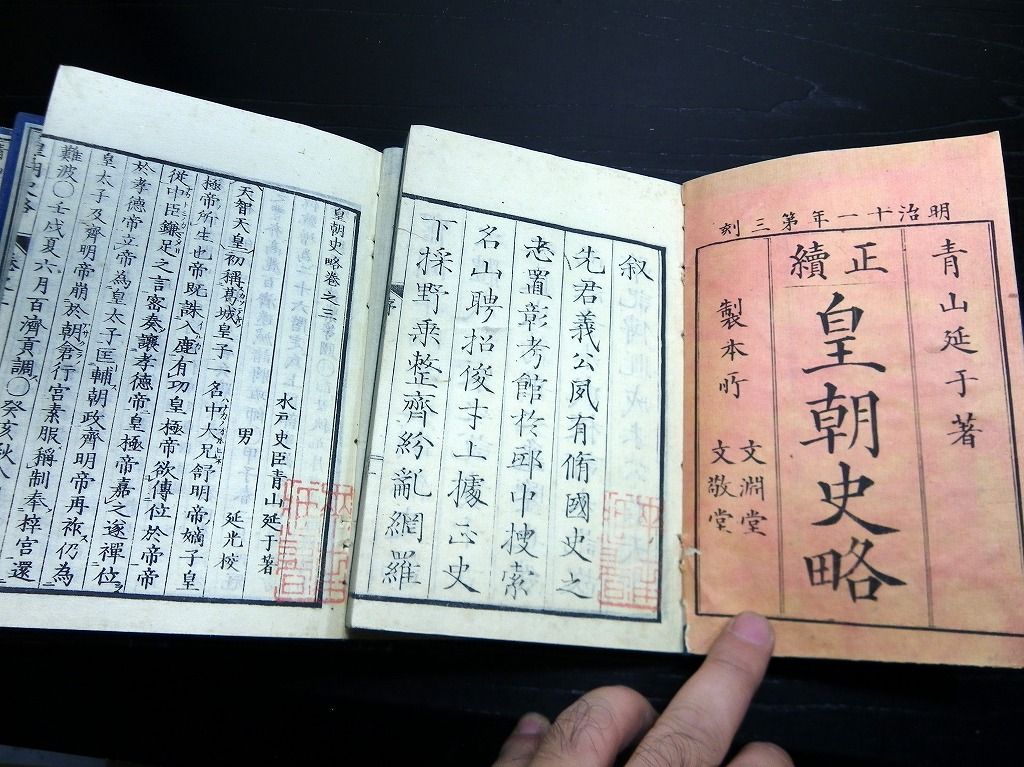 明治十一年第三刻
青山延于著
正續
皇朝史略
製本所
文淵堂
文敬堂
叙
先君義公夙有脩國史之
志置彰考館於邸中搜索
名山聘招俊才上據正史
下採野乘整齊紛亂網羅
序
皇朝史略卷之三
水戸史臣青山延于著
男 延光校
天智天皇初稱葛城皇子一名中大兄舒明帝嫡子皇
極帝所生也帝既誅入鹿有功皇極帝欲傳位於帝帝
從中臣鎌足之言密奏讓孝德帝皇極帝嘉之遂禪位
於孝德帝立帝為皇太子匡輔朝政齊明帝再祚仍為
皇太子及齊明帝崩於朝倉行宮素服稱制奉梓宮還
難波○壬戌夏六月百濟貢調○癸亥秋八
皇朝史略